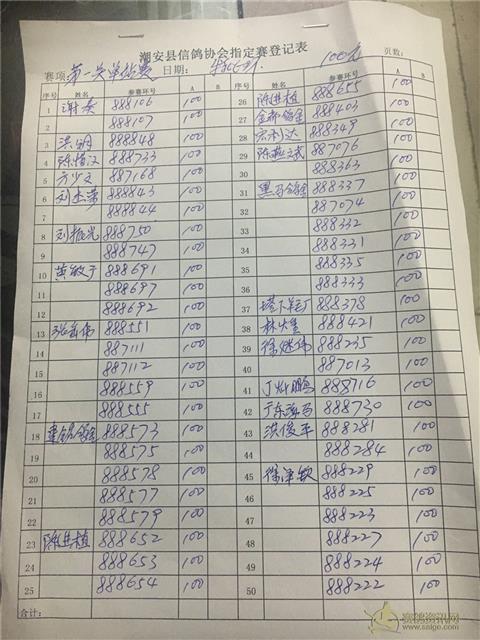 潮安县信鸽协会指定赛登记表
赛项: 第一关单站赛 日期: 100元 页数:
序号 姓名 参赛环号 A B 序号 姓名 参赛环号 A B
1 谢奏 888106 100 26 陈进植 888655 100
2 888107 100 27 金都鸽舍 888403 100
3 洪明 888848 100 28 宏利达 888349 100
4 陈楷汉 888733 100 29 陈燕斌 887076 100
5 方少文 887168 100 30 888363 100
6 刘岳荣 888843 100 31 黑马鸽舍 888337 100
7 888844 100 32 887074 100
8 刘振光 888750 100 33 888332 100
9 888747 100 34 888331 100
10 黄敏子 888691 100 35 888335 100
11 888697 100 36 888333 100
12 888692 100 37 塔下 888378 100
13 张 伟 888551 100 38 林 888421 100
14 887111 100 39 徐继伟 888235 100
15 887112 100 40 887013 100
16 888559 100 41 丁灿鹏 888716 100
17 888555 100 42 丁东 888730 100
18 鸽舍 888573 100 43 洪俊平 888281 100
19 888575 100 44 888284 100
20 888578 100 45 徐泽钦 888229 100
21 888577 100 46 888225 100
22 888579 100 47 888223 100
23 陈进植 888652 100 48 888227 100
24 888653 100 49 888224 100
25 888654 100 50 888222 100
合计:
赛鸽资讯网
www.saige.com